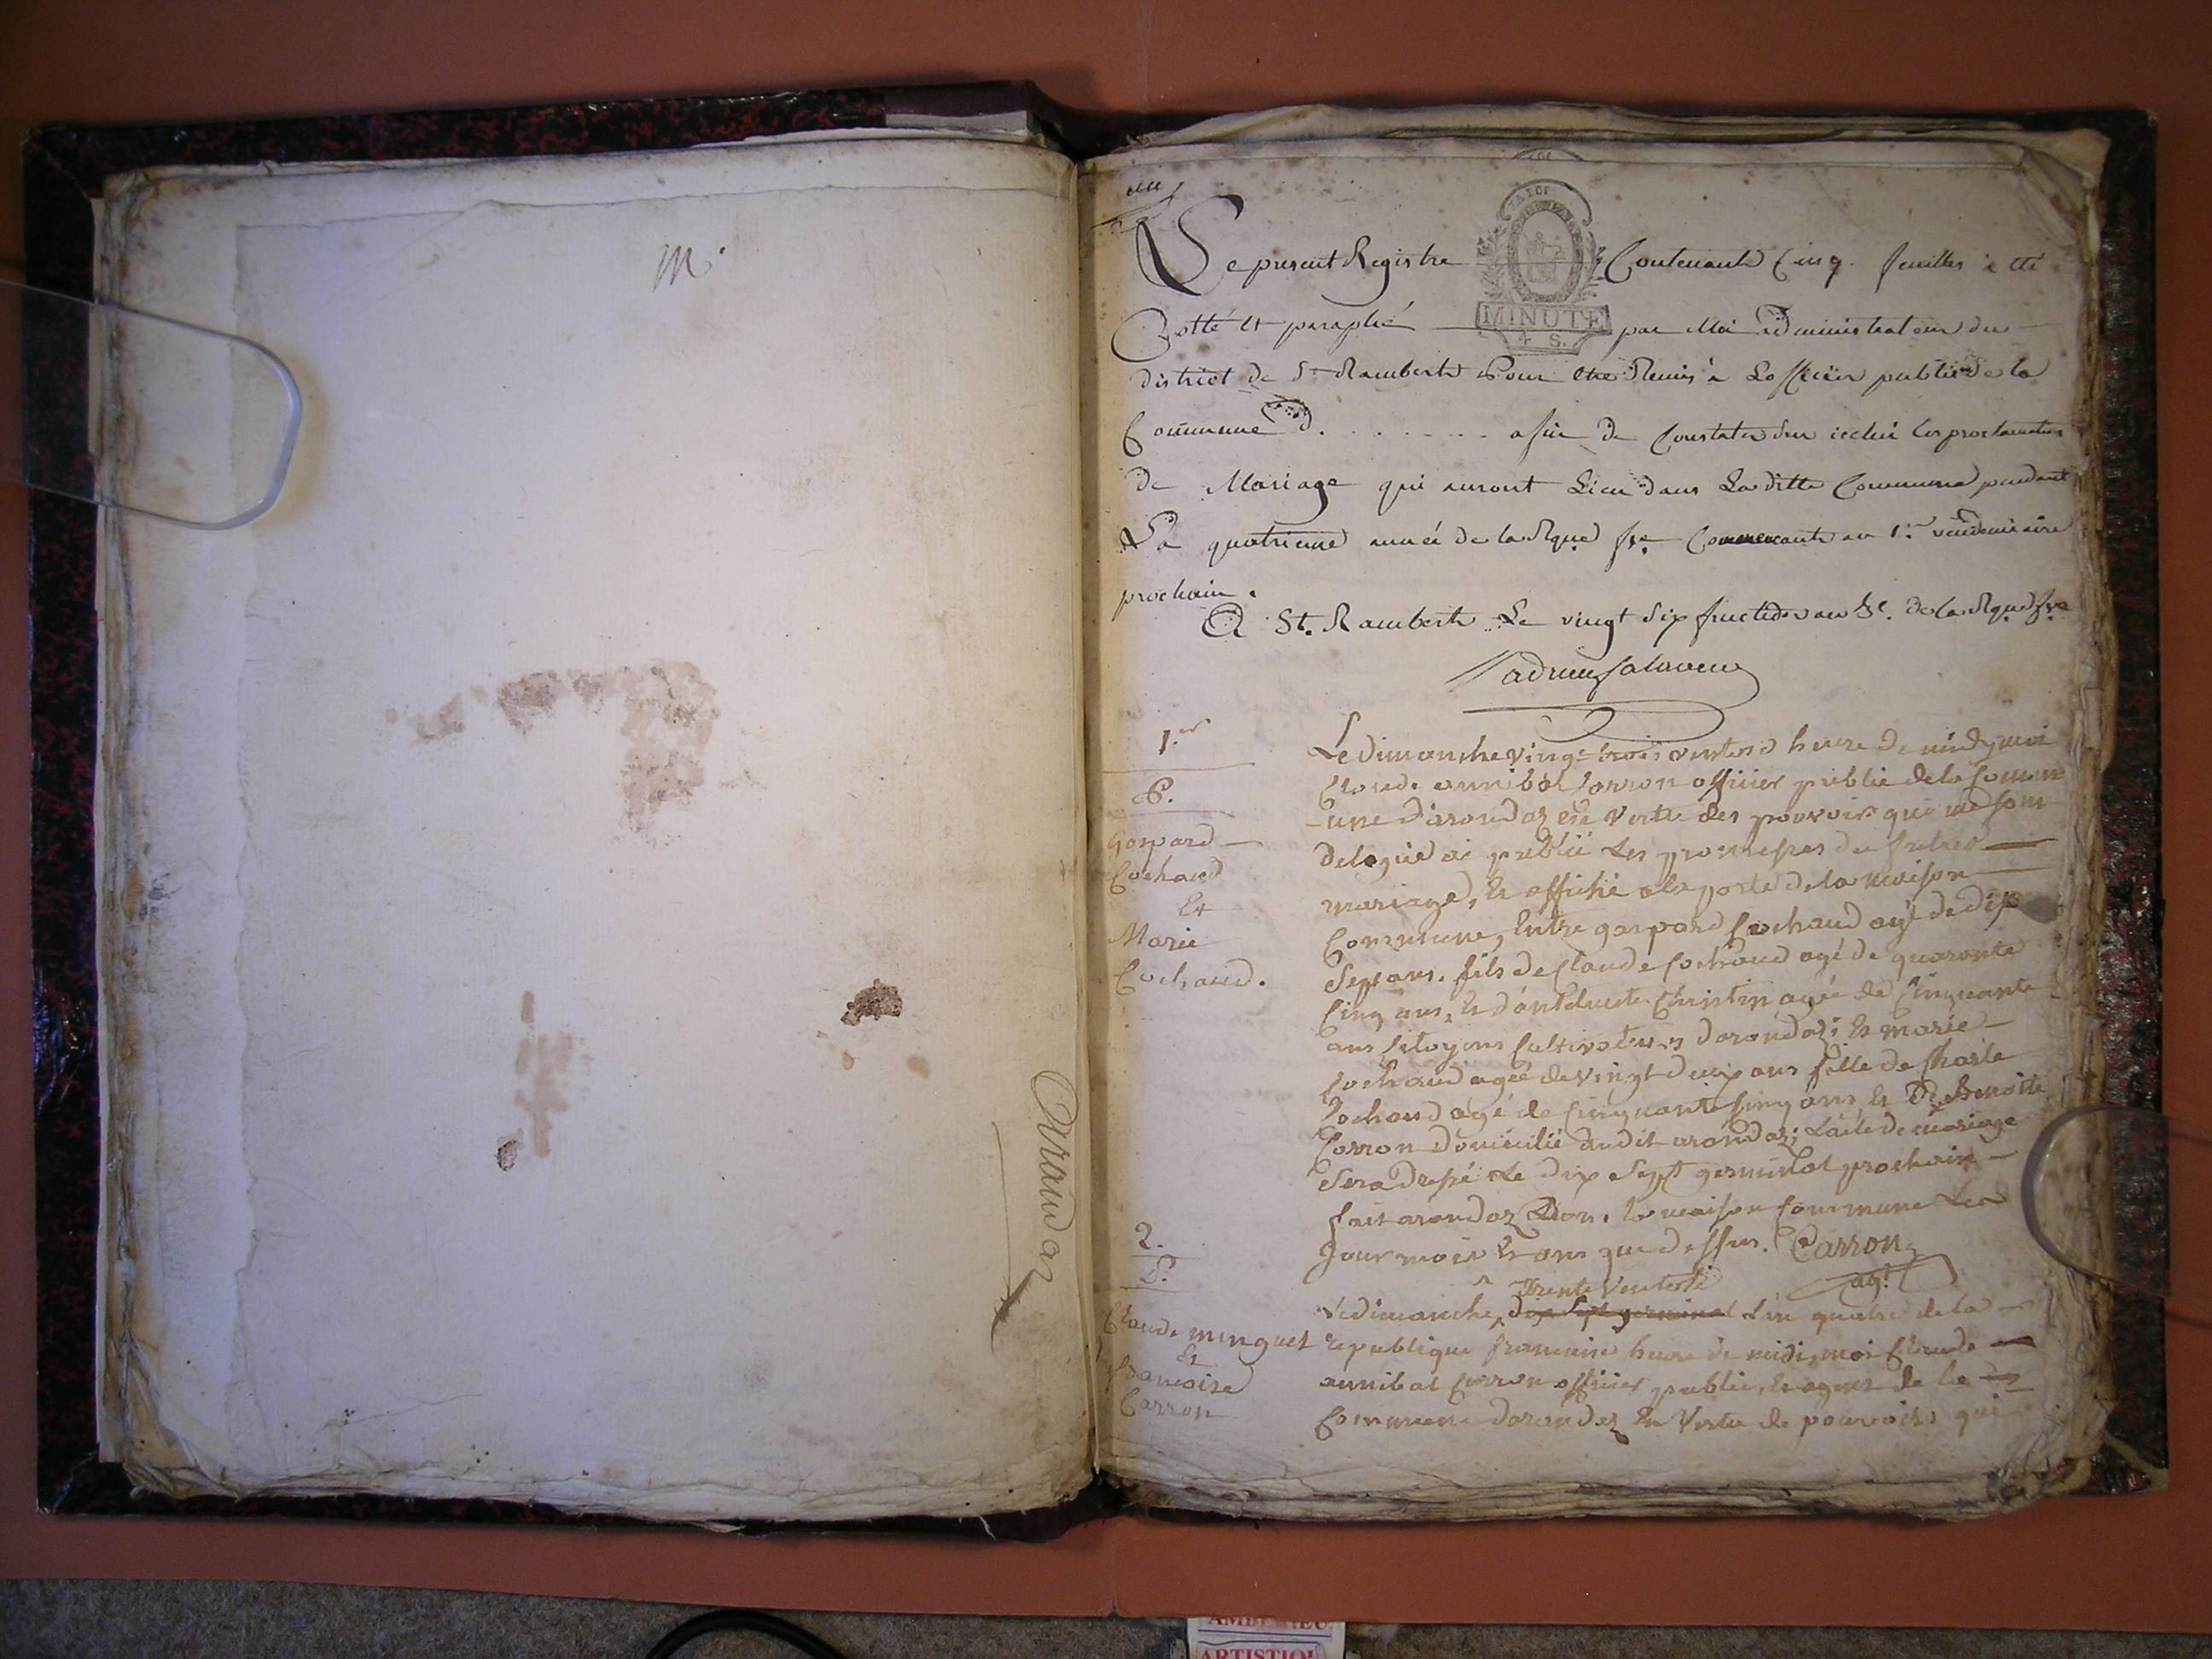 M.
Arandaz
LA LOI
MINUTE
4 S.
Le present Registre Contenant Cinq feuilles a été
Cotté et paraphé par Moi administrateur du
district de St Rambert Pour être Remis à Lofficier public de la
Commune d. . . . . . . . afin de Constater sur icelui les proclamations
de Mariage qui auront Lieu dans Laditte Commune pendant
La quatrieme année de la Rque fse Commencante au 1er vendemiaire
prochain.
A St. Rambert Le vingt six fructidor an 3e. de la Rque fse
1.er
P.
Gaspard
Cochaud
Et
Marie
Cochaud.
Le dimanche vingt trois ventose heure de midy moi
Claude annibal Carron officier public de la Comm
une darandaz en vertu des pouvoirs qui me sont
delegué ai publié Les promesses du futur
mariage, Et affiché a la porte de la maison
Commune, Entre gaspard Cochaud agé de dix
Sept ans. fils de Claude Cochaud agé de quarante
Cinq ans, Et Christin agée de Cinquante
ans Citoyens Cultivateurs darandaz; Et marie
Cochaud agée de vingt deux ans fille de Charle
Cochaud agé de Cinquante Cinq ans Et De Benoite
Carron domicilié audit arandaz; Lacte de mariage
Sera dressé Le dix Sept germinal prochain
fait arandaz Dans la maison Commune Les
Jour mois Et ans que dessus. Carron
agt
2.
P.
Claude minguet
Et
francoise
Carron
Trente Ventose
Le dimanche, dix Sept germinal L'an quatre de la
republique francaise heure de midi, moi Claude
annibal Carron officier public, Et agent de la
Commune darandaz En Vertu de pouvoirs qui
ARTISTIQ